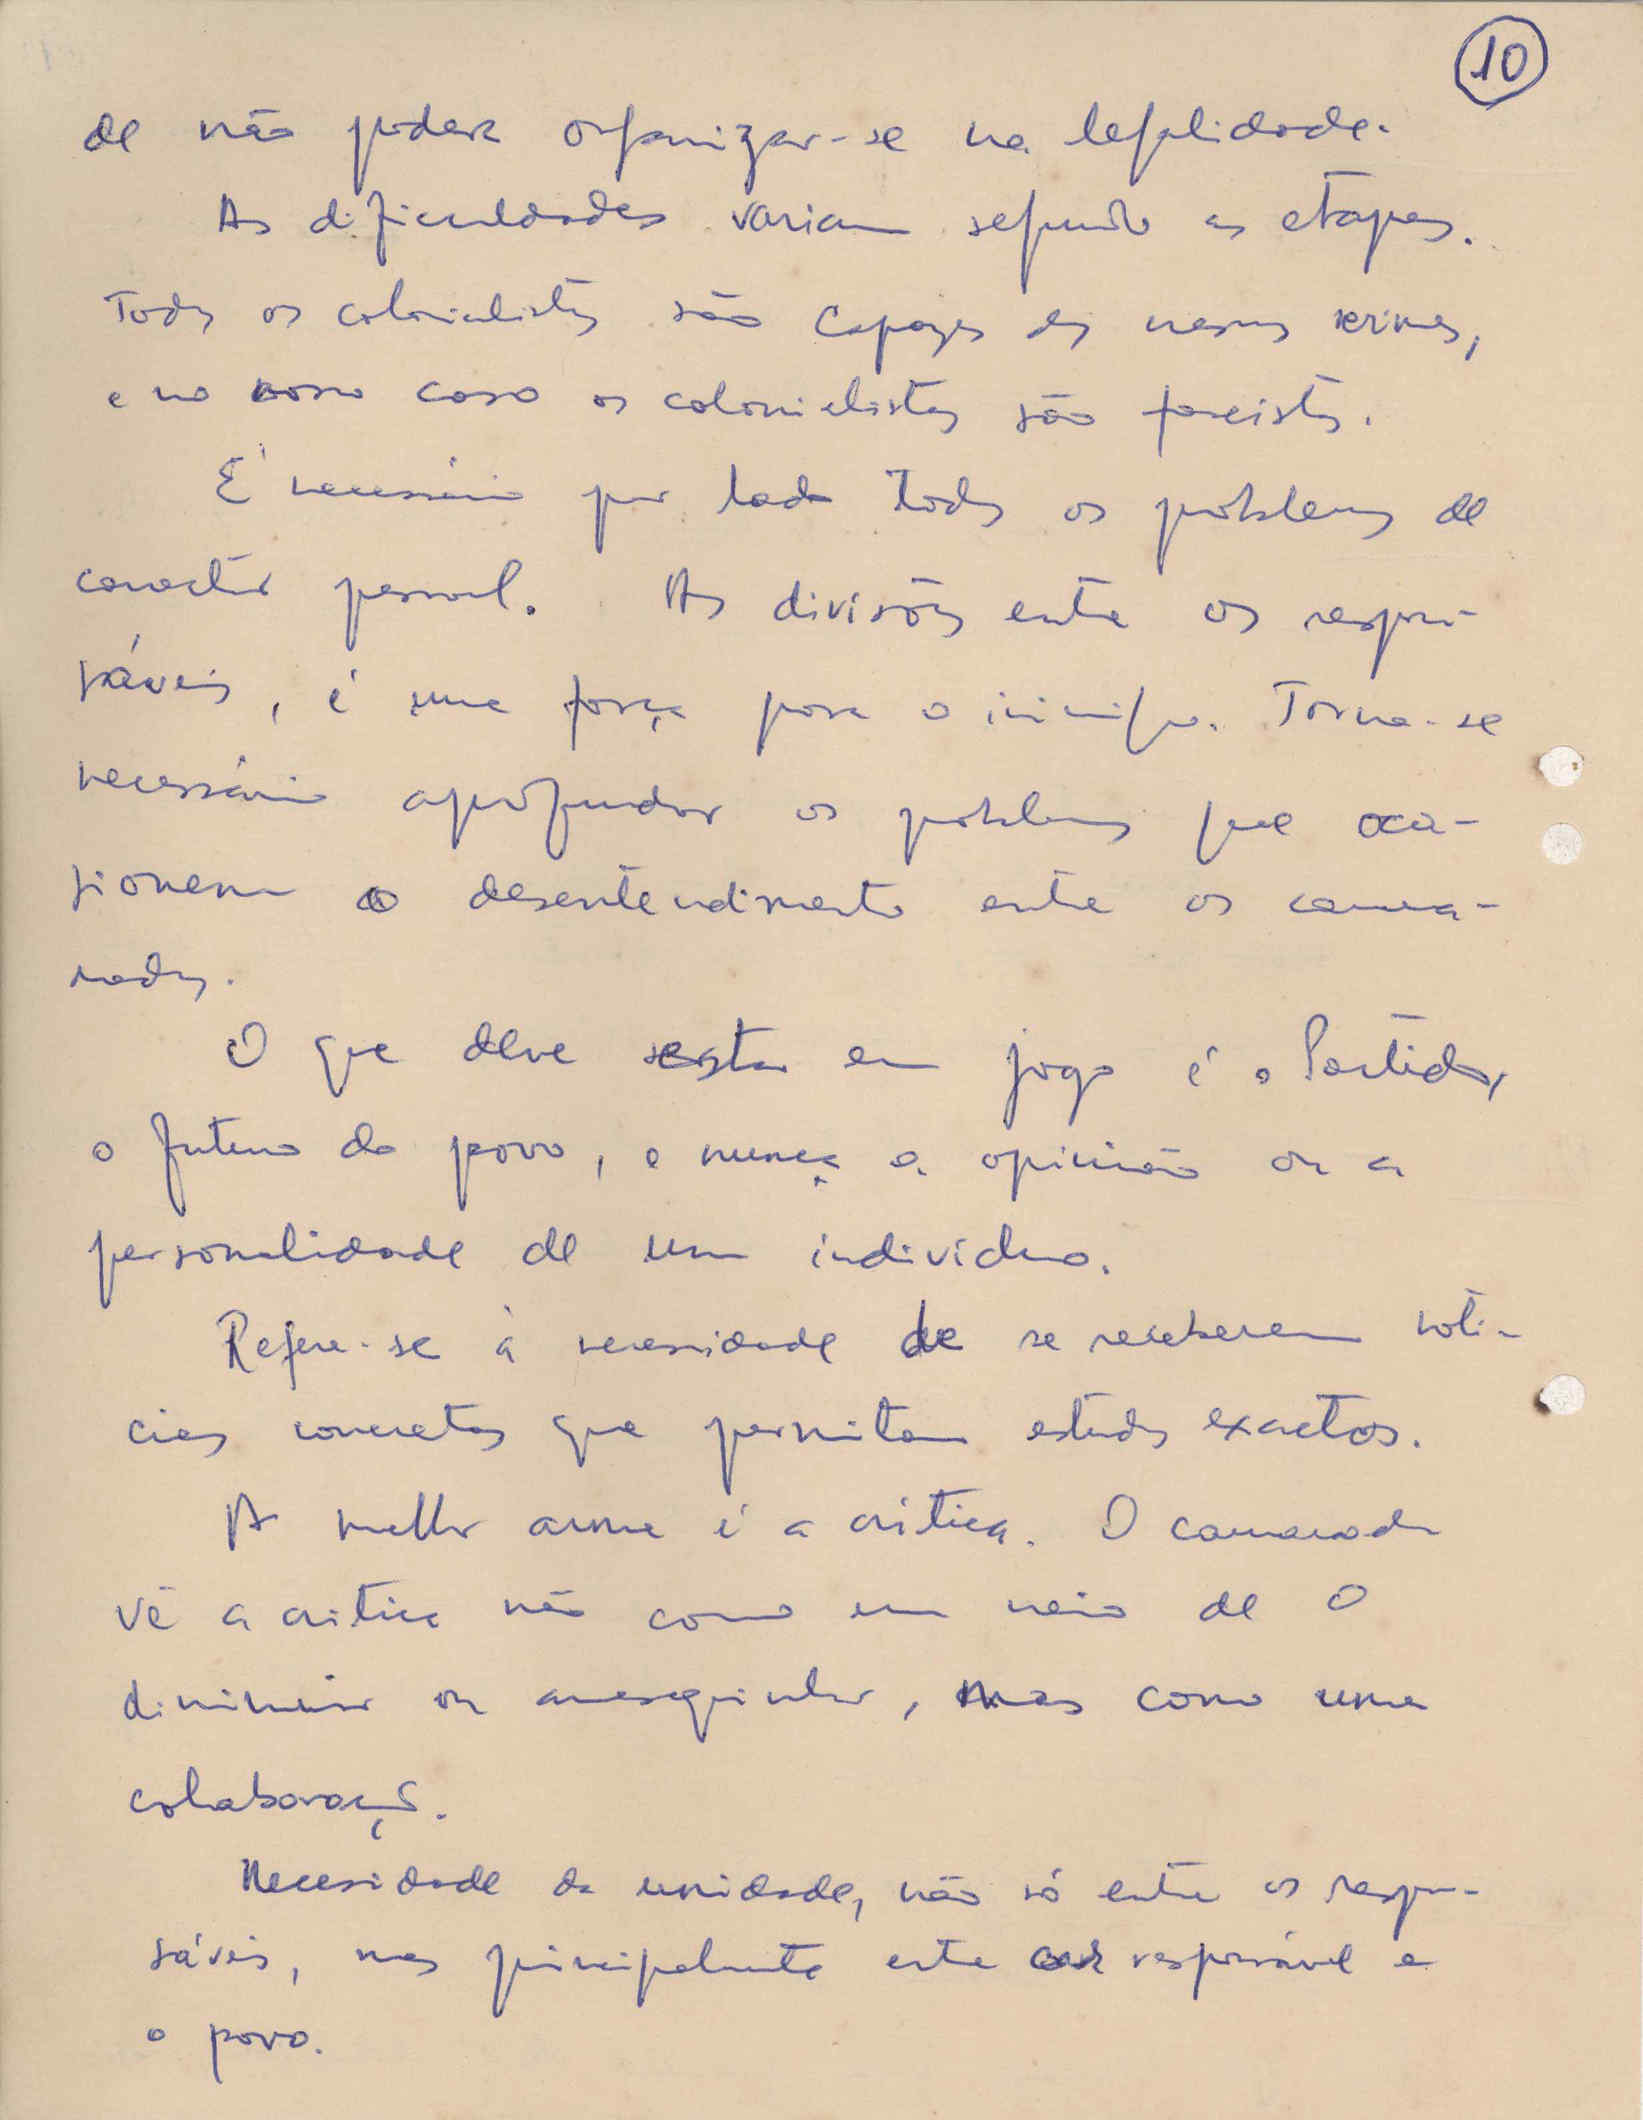 10
de não poder organizar-se na legalidade.
As dificuldades variam segundo as etapas.
Todos os colonialistas são capazes dos mesmos crimes,
e no nosso caso os colonialistas são fascistas.
É necessário pôr lado todos os problemas de
caracter pessoal. As divisões entre os respon-
sáveis, é uma força para o inimigo. Torna-se
necessário aprofundar os problemas que oca-
sionem o desentendimento entre os cama-
radas.
O que deve estar em jogo é o Partido,
o futuro do povo, e nunca a opinião ou a
personalidade de um indivíduo.
Refere-se à necessidade de se receberem notí-
cias concretas que permitam estudos exactos.
A melhor arma é a crítica. O camarada
vê a crítica não como um meio de o
diminuir ou amesquinhar, mas como uma
colaboração.
Necessidade da unidade, não só entre os respon-
sáveis, mas principalmente entre responsável e
o povo.